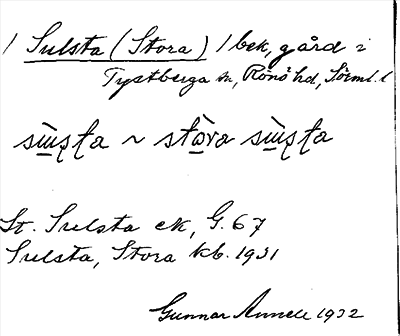 / Sulsta (Stora) / bek, gård i
Tystberga sn, Rönö hd, Sörml. l
St. Sulsta ek, G. 67
Sulsta, Stora kb. 1931
Gunnar Annell 1932